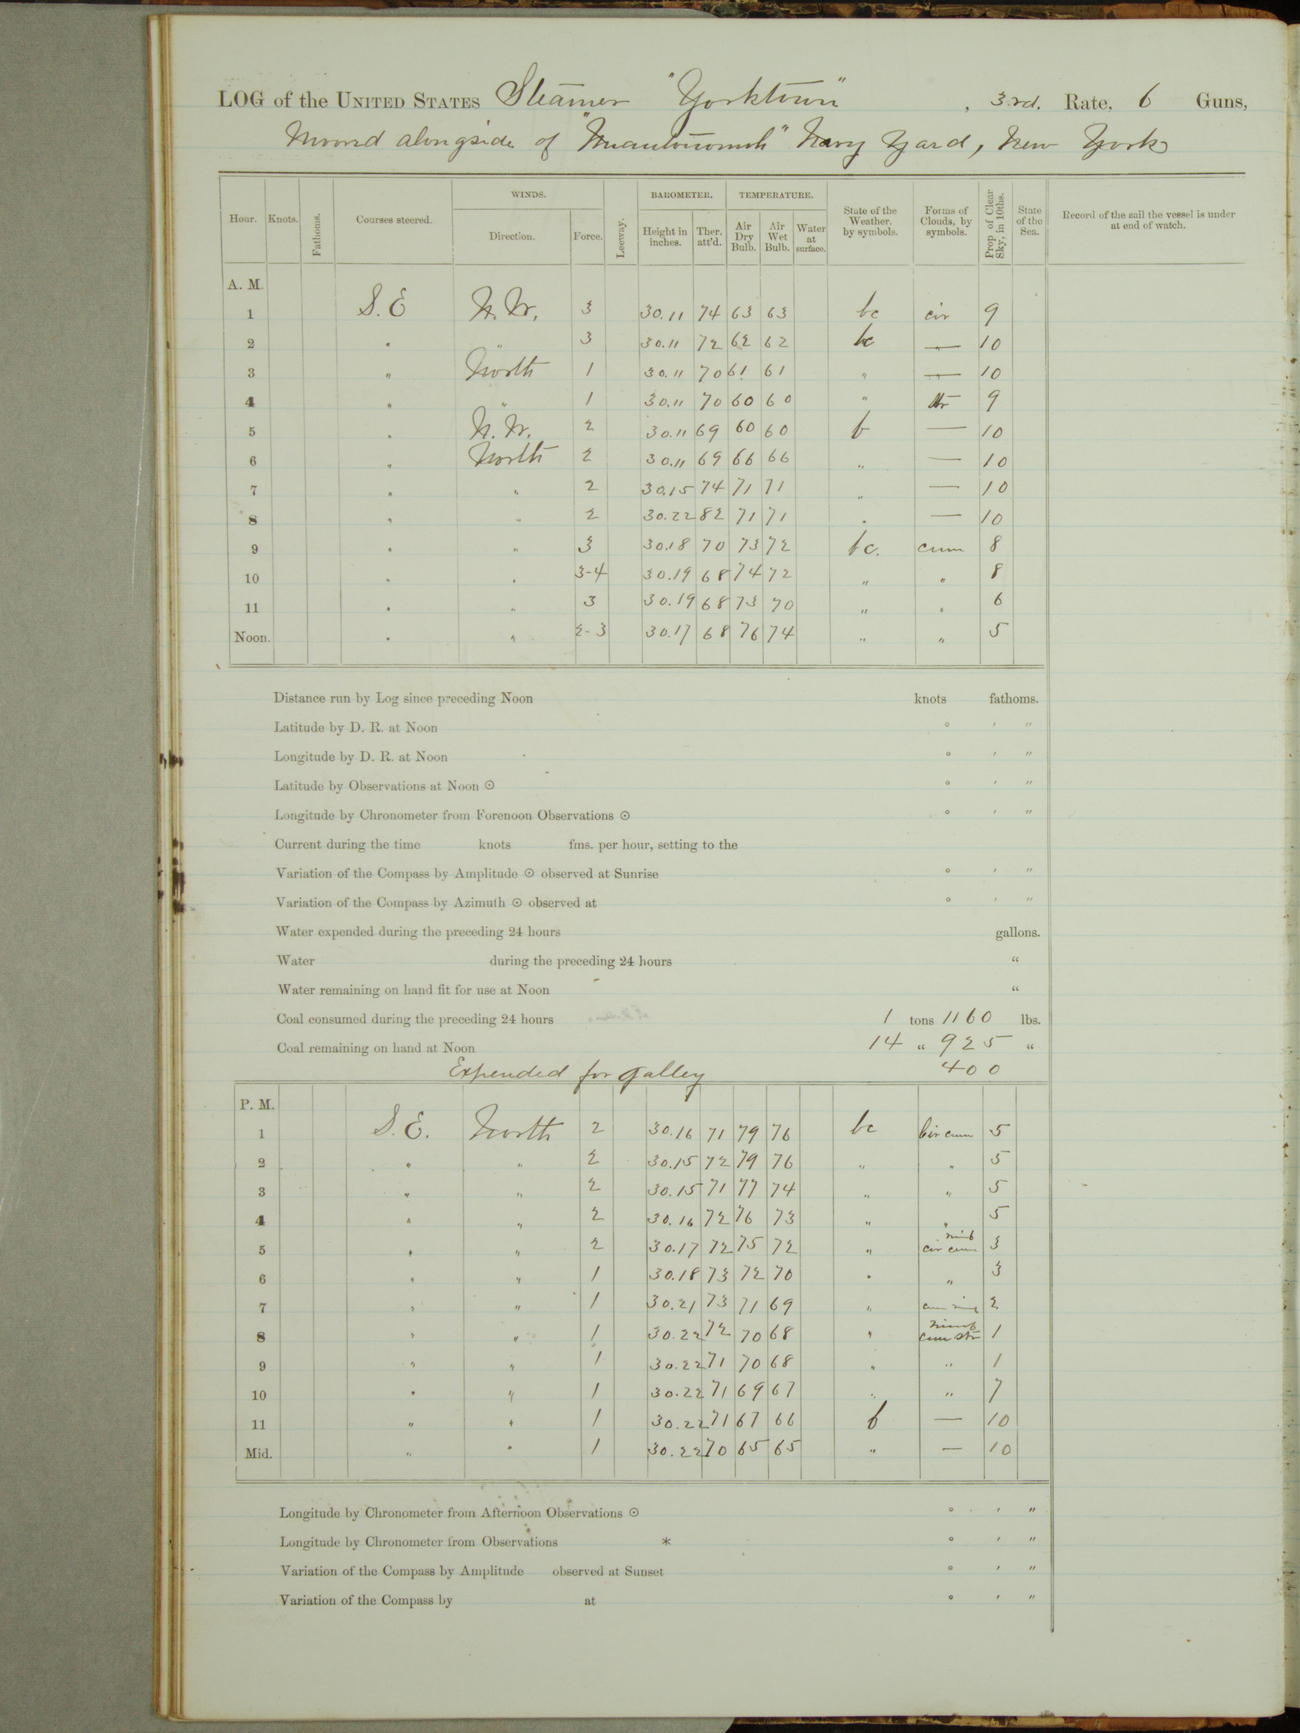 LOG of the UNITED STATES Steamer "Yorktown", 3rd. Rate, 6 Guns,
Moored alongside of "Miantonomoh" Navy Yard, New York
WINDS. BAROMETER. TEMPERATURE.
Hour. Knots. Fathoms. Courses steered. Direction. Force. Leeway. Height in inches. Ther. att'd. Air Dry Bulb. Air Wet Bulb. Water at surface. State of the Weather, by symbols. Forms of Clouds, by symbols. Prop. of Clear Sky, in 10ths. State of the Sea. Record of the sail the vessel is under at end of watch.
A. M.
1 S. E N. W. 3 30.11 74 63 63 bc cir 9
2 " " 3 30.11 72 62 62 bc — 10
3 " North 1 30.11 70 61 61 " — 10
4 " " 1 30.11 70 60 60 " str 9
5 " N. W. 2 30.11 69 60 60 b — 10
6 " North 2 30.11 69 66 66 " — 10
7 " " 2 30.15 74 71 71 " — 10
8 " " 2 30.22 82 71 71 " — 10
9 " " 3 30.18 70 73 72 bc. cum 8
10 " " 3-4 30.19 68 74 72 " " 8
11 " " 3 30.19 68 73 70 " " 6
Noon. " " 2-3 30.17 68 76 74 " " 5
Distance run by Log since preceding Noon knots fathoms.
Latitude by D. R. at Noon ° ′ ″
Longitude by D. R. at Noon ° ′ ″
Latitude by Observations at Noon ☉ ° ′ ″
Longitude by Chronometer from Forenoon Observations ☉ ° ′ ″
Current during the time knots fms. per hour, setting to the
Variation of the Compass by Amplitude ☉ observed at Sunrise ° ′ ″
Variation of the Compass by Azimuth ☉ observed at ° ′ ″
Water expended during the preceding 24 hours gallons.
Water during the preceding 24 hours "
Water remaining on hand fit for use at Noon "
Coal consumed during the preceding 24 hours 1 tons 1160 lbs.
Coal remaining on hand at Noon 14 " 925 "
Expended for galley 400
P. M.
1 S. E. North 2 30.16 71 79 76 bc Cir cum 5
2 " " 2 30.15 72 79 76 " " 5
3 " " 2 30.15 71 77 74 " " 5
4 " " 2 30.16 72 76 73 " " 5
5 " " 2 30.17 72 75 72 " cir cum nimb 3
6 " " 1 30.18 73 72 70 " " 3
7 " " 1 30.21 73 71 69 " cum nimb 2
8 " " 1 30.22 72 70 68 " nimb cum str 1
9 " " 1 30.22 71 70 68 " " 1
10 " " 1 30.22 71 69 67 " " 7
11 " " 1 30.22 71 67 66 b — 10
Mid. " " 1 30.22 70 65 65 " — 10
Longitude by Chronometer from Afternoon Observations ☉ ° ′ ″
Longitude by Chronometer from Observations * ° ′ ″
Variation of the Compass by Amplitude observed at Sunset ° ′ ″
Variation of the Compass by at ° ′ ″